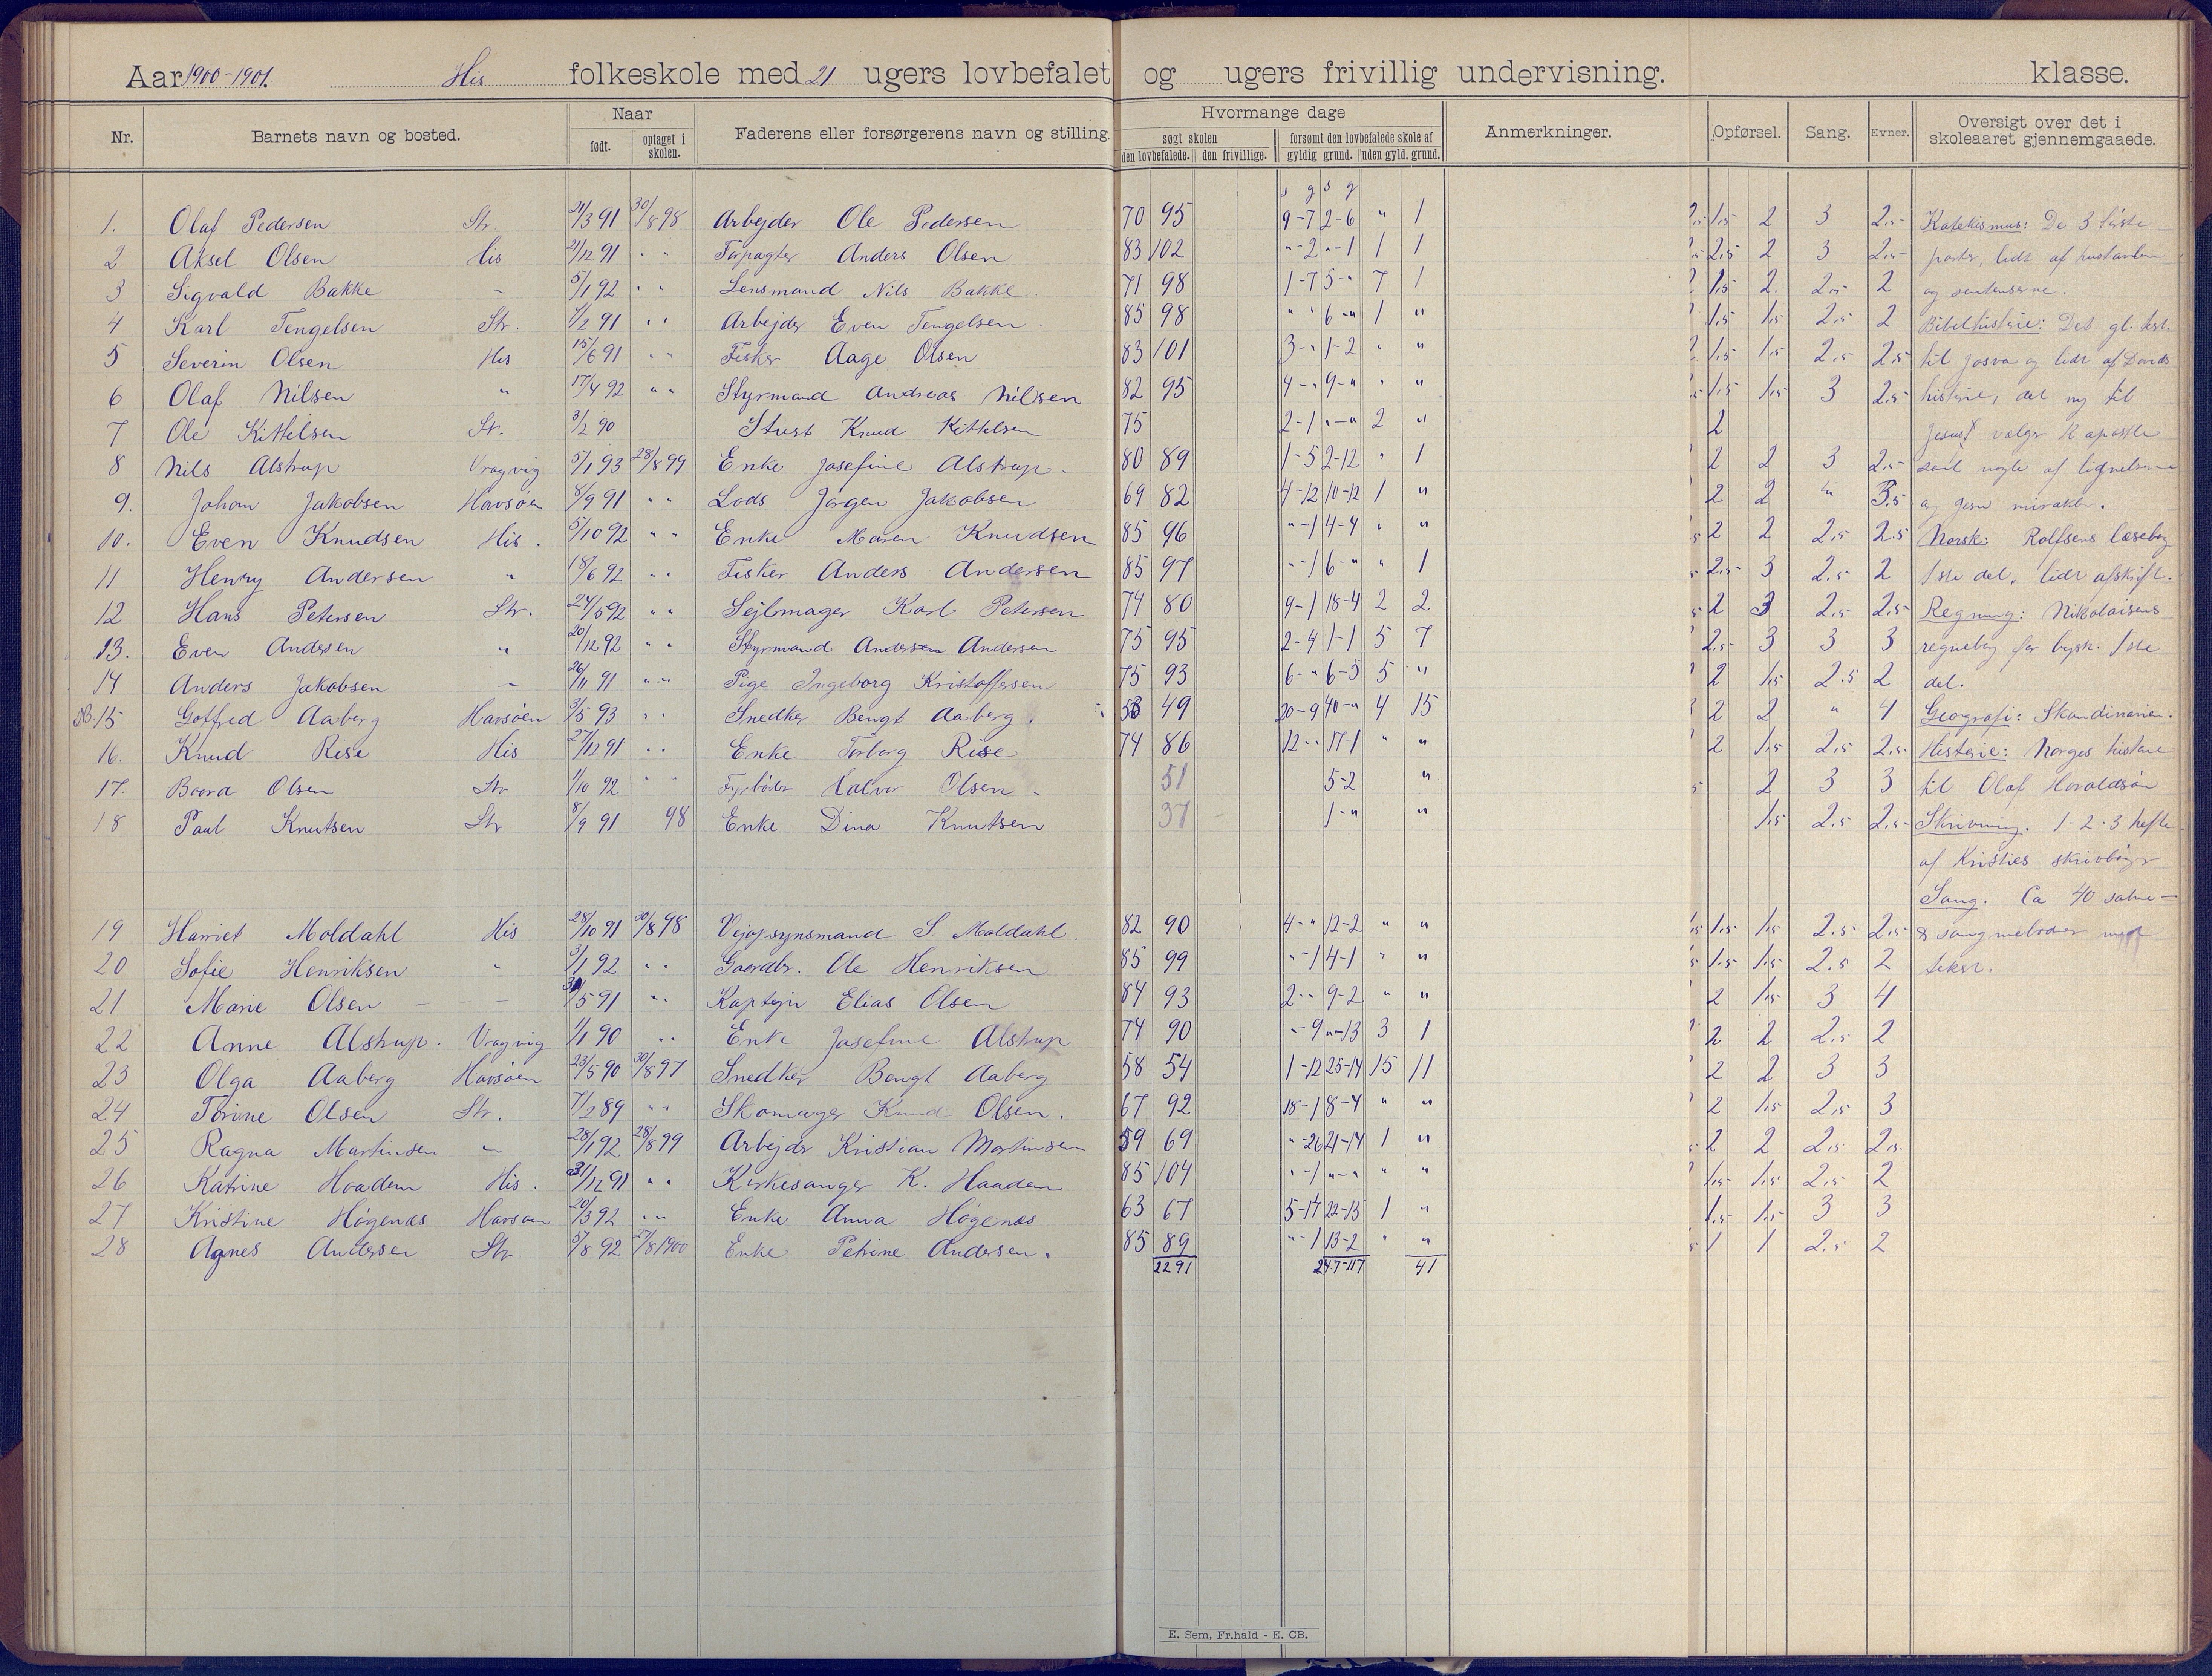 Aar 1900-1901. His folkeskole med 21 ugers lovbefalet og ugers frivillig undervisning. klasse.
Nr. Barnets navn og bosted. Naar født. optaget i skolen. Faderens eller forsørgerens navn og stilling. Hvormange dage søgt skolen den lovbefalede. den frivillige. forsømt den lovbefalede skole af gyldig grund. uden gyld. grund. Anmerkninger. Opførsel. Sang. Evner. Oversigt over det i skoleaaret gjennemgaaede.
s g s g
1. Olaf Pedersen Str. 21/3 91 30/8 98 Arbejder Ole Pedersen 70 95 9-7 2-6 " 1 1.5 2 3 2.5 Katekismus: De 3 første
2 Aksel Olsen His 21/12 91 " " Forpagter Anders Olsen 83 102 "-2 "-1 1 1 2.5 2 3 2.5 parter, lidt af hustavlen
3 Sigvald Bakke - 5/1 92 " " Lensmand Nils Bakke. 71 98 1-7 5-" 7 1 1.5 2. 2.5 2 og sentenserne.
4 Karl Tengelsen Str. 1/2 91 " " Arbejder Even Tengelsen. 85 98 " " 6-" 1 " 1.5 1.5 2.5 2 Bibelhistorie: Det gl. test.
5 Severin Olsen His 15/6 91 " " Fisker Aage Olsen 83 101 3-" 1-2 " " 1.5 1.5 2.5 2.5 til Josva og lidt af Davids
6 Olaf Nilsen " 17/4 92 " " Styrmand Andreas Nilsen 82 95 4-" 9-" " " 1.5 1.5 3 2.5 historie, det ny til
7 Ole Kittelsen Str. 3/2 90 Knud Kittelsen 75 2-1 "-" 2 " 2 Jesus valgr apostle
8 Nils Alstrup Vragvig 5/1 93 28/8 99 Enke Josefine Alstrup. 80 89 1-5 2-12 " 1 2 2 3 2.5 samt nogle af lignelserne
9. Johan Jakobsen Havsøen 8/9 91 " " Lods Jørgen Jakobsen 69 82 4-12 10-12 1 " 2 2 " 3.5 og Jesu mirakler.
10. Even Knudsen His. 5/10 92 " " Enke Maren Knudsen 85 96 "-1 4-4 " " 2 2 2.5 2.5 Norsk: Rolfsens læsebog
11 Henry Andersen " 18/6 92 " " Fisker Anders Andersen 85 97 "-1 6-" " 1 2.5 3 2.5 2 1ste del, lidt afskrift.
12 Hans Petersen Str. 24/5 92 " " Sejlmager Karl Petersen 74 80 9-1 18-4 2 2 2 3 2.5 2.5 Regning: Nikolaisens
13. Even Andersen " 20/12 92 " " Styrmand Andersen Andersen 75 95 2-4 1-1 5 7 2.5 3 3 3 regnebog for bysk. 1ste
14 Anders Jakobsen - 26/11 91 " " Pige Ingeborg Kristoffersen 75 93 6-" 6-5 5 " 2 1.5 2.5 2 del.
NB. 15 Gotfred Aaberg Havsøen 3/5 93 " " Snedker Bengt Aaberg. 53 49 20-9 40-" 4 15 2 2 " 4 Geografi: Skandinavien.
16. Knud Rise His 27/12 91 " " Enke Torborg Rise 74 86 12-" 17-1 " " 2 1.5 2.5 2.5 Historie: Norges historie
17. Baard Olsen Str 1/10 92 " " Fyrbøder Halvor Olsen - 51 5-2 " 2 3 3 til Olaf Haraldsøn
18 Paul Knutsen Str 8/9 91 98 Enke Dina Knutsen 37 1-" " 1.5 2.5 2.5 Skrivning. 1-2-3 hefte
af Kristies skrivbøger
Sang. Ca 40 salme-
19 Harriet Moldahl His 28/10 91 30/8 98 Vejopsynsmand S Moldahl. 82 90 4-" 12-2 " " 1.5 1.5 2.5 2.5 & sangmelodier med
20 Sofie Henriksen " 3/1 92 " " Gaardbr. Ole Henriksen 85 99 "-1 4-1 " " 1.5 1.5 2.5 2 tekst.
21 Marie Olsen - - 31/5 91 " " Kaptejn Elias Olsen 84 93 2-" 9-2 " " 2 1.5 3 4
22 Anne Alstrup. Vragvig 1/1 90 " " Enke Josefine Alstrup 74 90 "-9 "-13 3 1 2 2 2.5 2
23 Olga Aaberg Havsøen 23/5 90 30/8 97 Snedker Bengt Aaberg 58 54 1-12 25-14 15 11 2 2 3 3
24 Torine Olsen Str. 7/2 89 " " Skomager Knud Olsen. 67 92 18-1 8-4 " " 2 1.5 2.5 3
25 Ragna Martinsen " 28/1 92 28/8 99 Arbejder Kristian Martinsen 59 69 "-26 21-14 1 " 2 2 2.5 2.5
26 Katrine Haadem His. 31/12 91 " " Kirkesanger K. Haadem 85 104 "-1 "-" " " 1.5 1.5 2.5 2
27 Kristine Høgenæs Havsøen 20/3 92 " " Enke Anna Høgenæs 63 67 5-17 22-15 1 " 1.5 1.5 3 3
28 Agnes Andersen Str. 5/8 92 27/8 1900 Enke Petrine Andersen. 85 89 "-1 13-2 " " 1 1 2.5 2
2291 247-117 41
E. Sem, Fr.hald - E. CB.